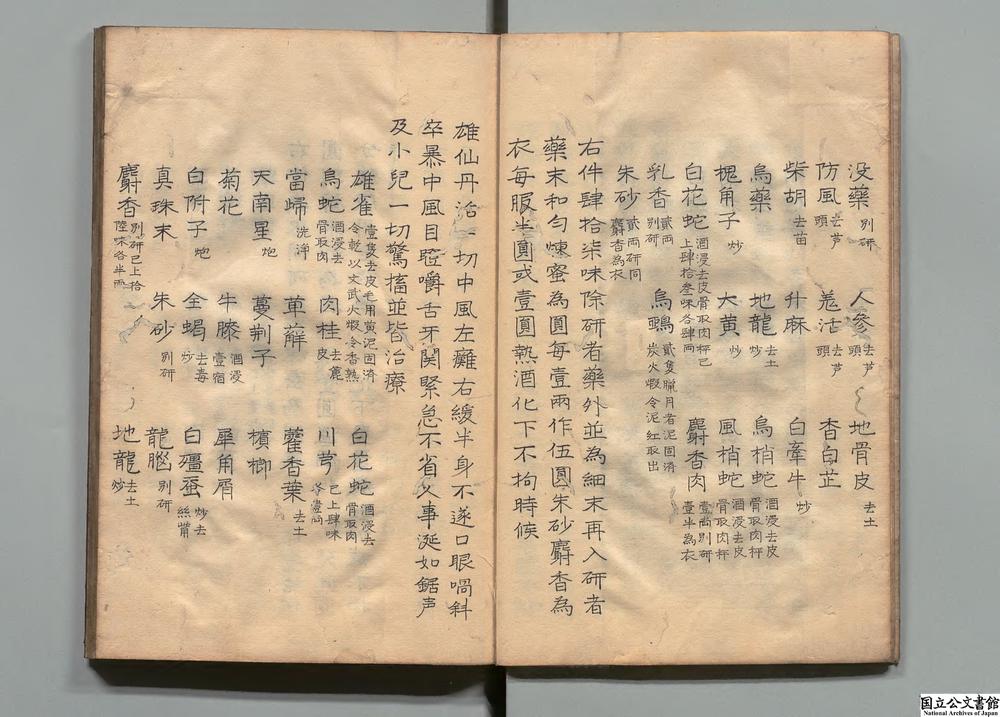 没藥 別研 人參 去芦頭 地骨皮 去土
防風 去芦頭 羗活 去芦頭 香白芷
柴胡 去苗 升麻 白牽牛 炒
烏藥 地龍 去土炒 烏梢蛇 酒浸去皮骨取肉秤
槐角子 炒 大黃 炒 風梢蛇 酒浸去皮骨取肉秤
白花蛇 酒浸去皮骨取肉秤已上肆拾叁味各肆両 麝香肉 壹両別研壹半為衣
乳香 貳両別研 烏鵶 貳隻臘月者泥固濟炭火煅令泥紅取出
朱砂 貳両研同麝香為衣
右件肆拾柒味除研者藥外並為細末再入研者
藥末和勻煉蜜為圓每壹兩作伍圓朱砂麝香為
衣每服半圓或壹圓熱酒化下不拘時候
雄仙丹治一切中風左癱右緩半身不遂口眼喎斜
卒暴中風目瞪嚼舌牙関緊急不省人事涎如鋸声
及小兒一切驚搐並皆治療
雄雀 壹隻去皮毛用黃泥固濟令乾以文武火煅令香熟 白花蛇 酒浸去骨取肉
烏蛇 酒浸去骨取肉 肉桂 去麁皮 川芎 已上肆味各壹両
當歸 洗淨 萆薢 藿香葉 去土
天南星 炮 蔓荆子 檳榔
菊花 牛膝 酒浸壹宿 犀角屑
白附子 炮 全蝎 去毒炒 白殭蚕 炒去絲觜
真珠末 朱砂 別研 龍腦 別研
麝香 別研已上拾陸味各半両 地龍 去土炒
国立公文書館
National Archives of Japan